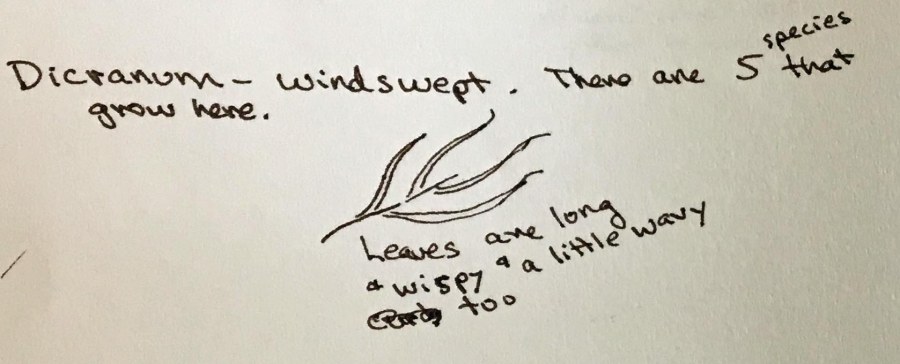 Dicranum - windswept. There are 5 species that
grow here.
Leaves are long
& wispy & a little wavy
too